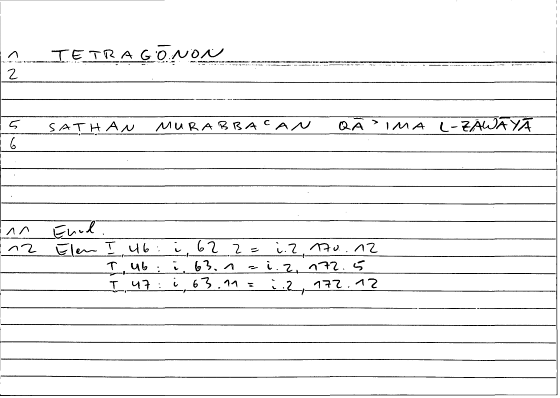 1 TETRAGŌNON
2
5 SATHAN MURABBAʿAN QĀʾIMA L-ZAWĀYĀ
6
11 Eucl.
12 Elem I, 46 : i, 62. 2 = i.2, 170.12
I, 46 : i, 63.1 = i.2, 172.5
I, 47 : i, 63.11 = i.2, 172.12